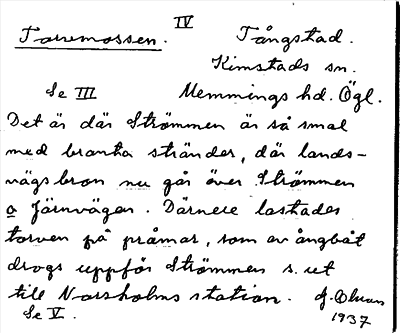 IV
Torvmossen. Tångstad.
Kimstads sn.
Se III Memmings hd. Ögl.
Det är där Strömmen är så smal
med branta stränder, där lands-
vägsbron nu går över Strömmen
o järnvägen. Därnere lastades
torven på pråmar, som av ångbåt
drogs uppför Strömmen s. ut
till Norsholms station.
Se V. 1937